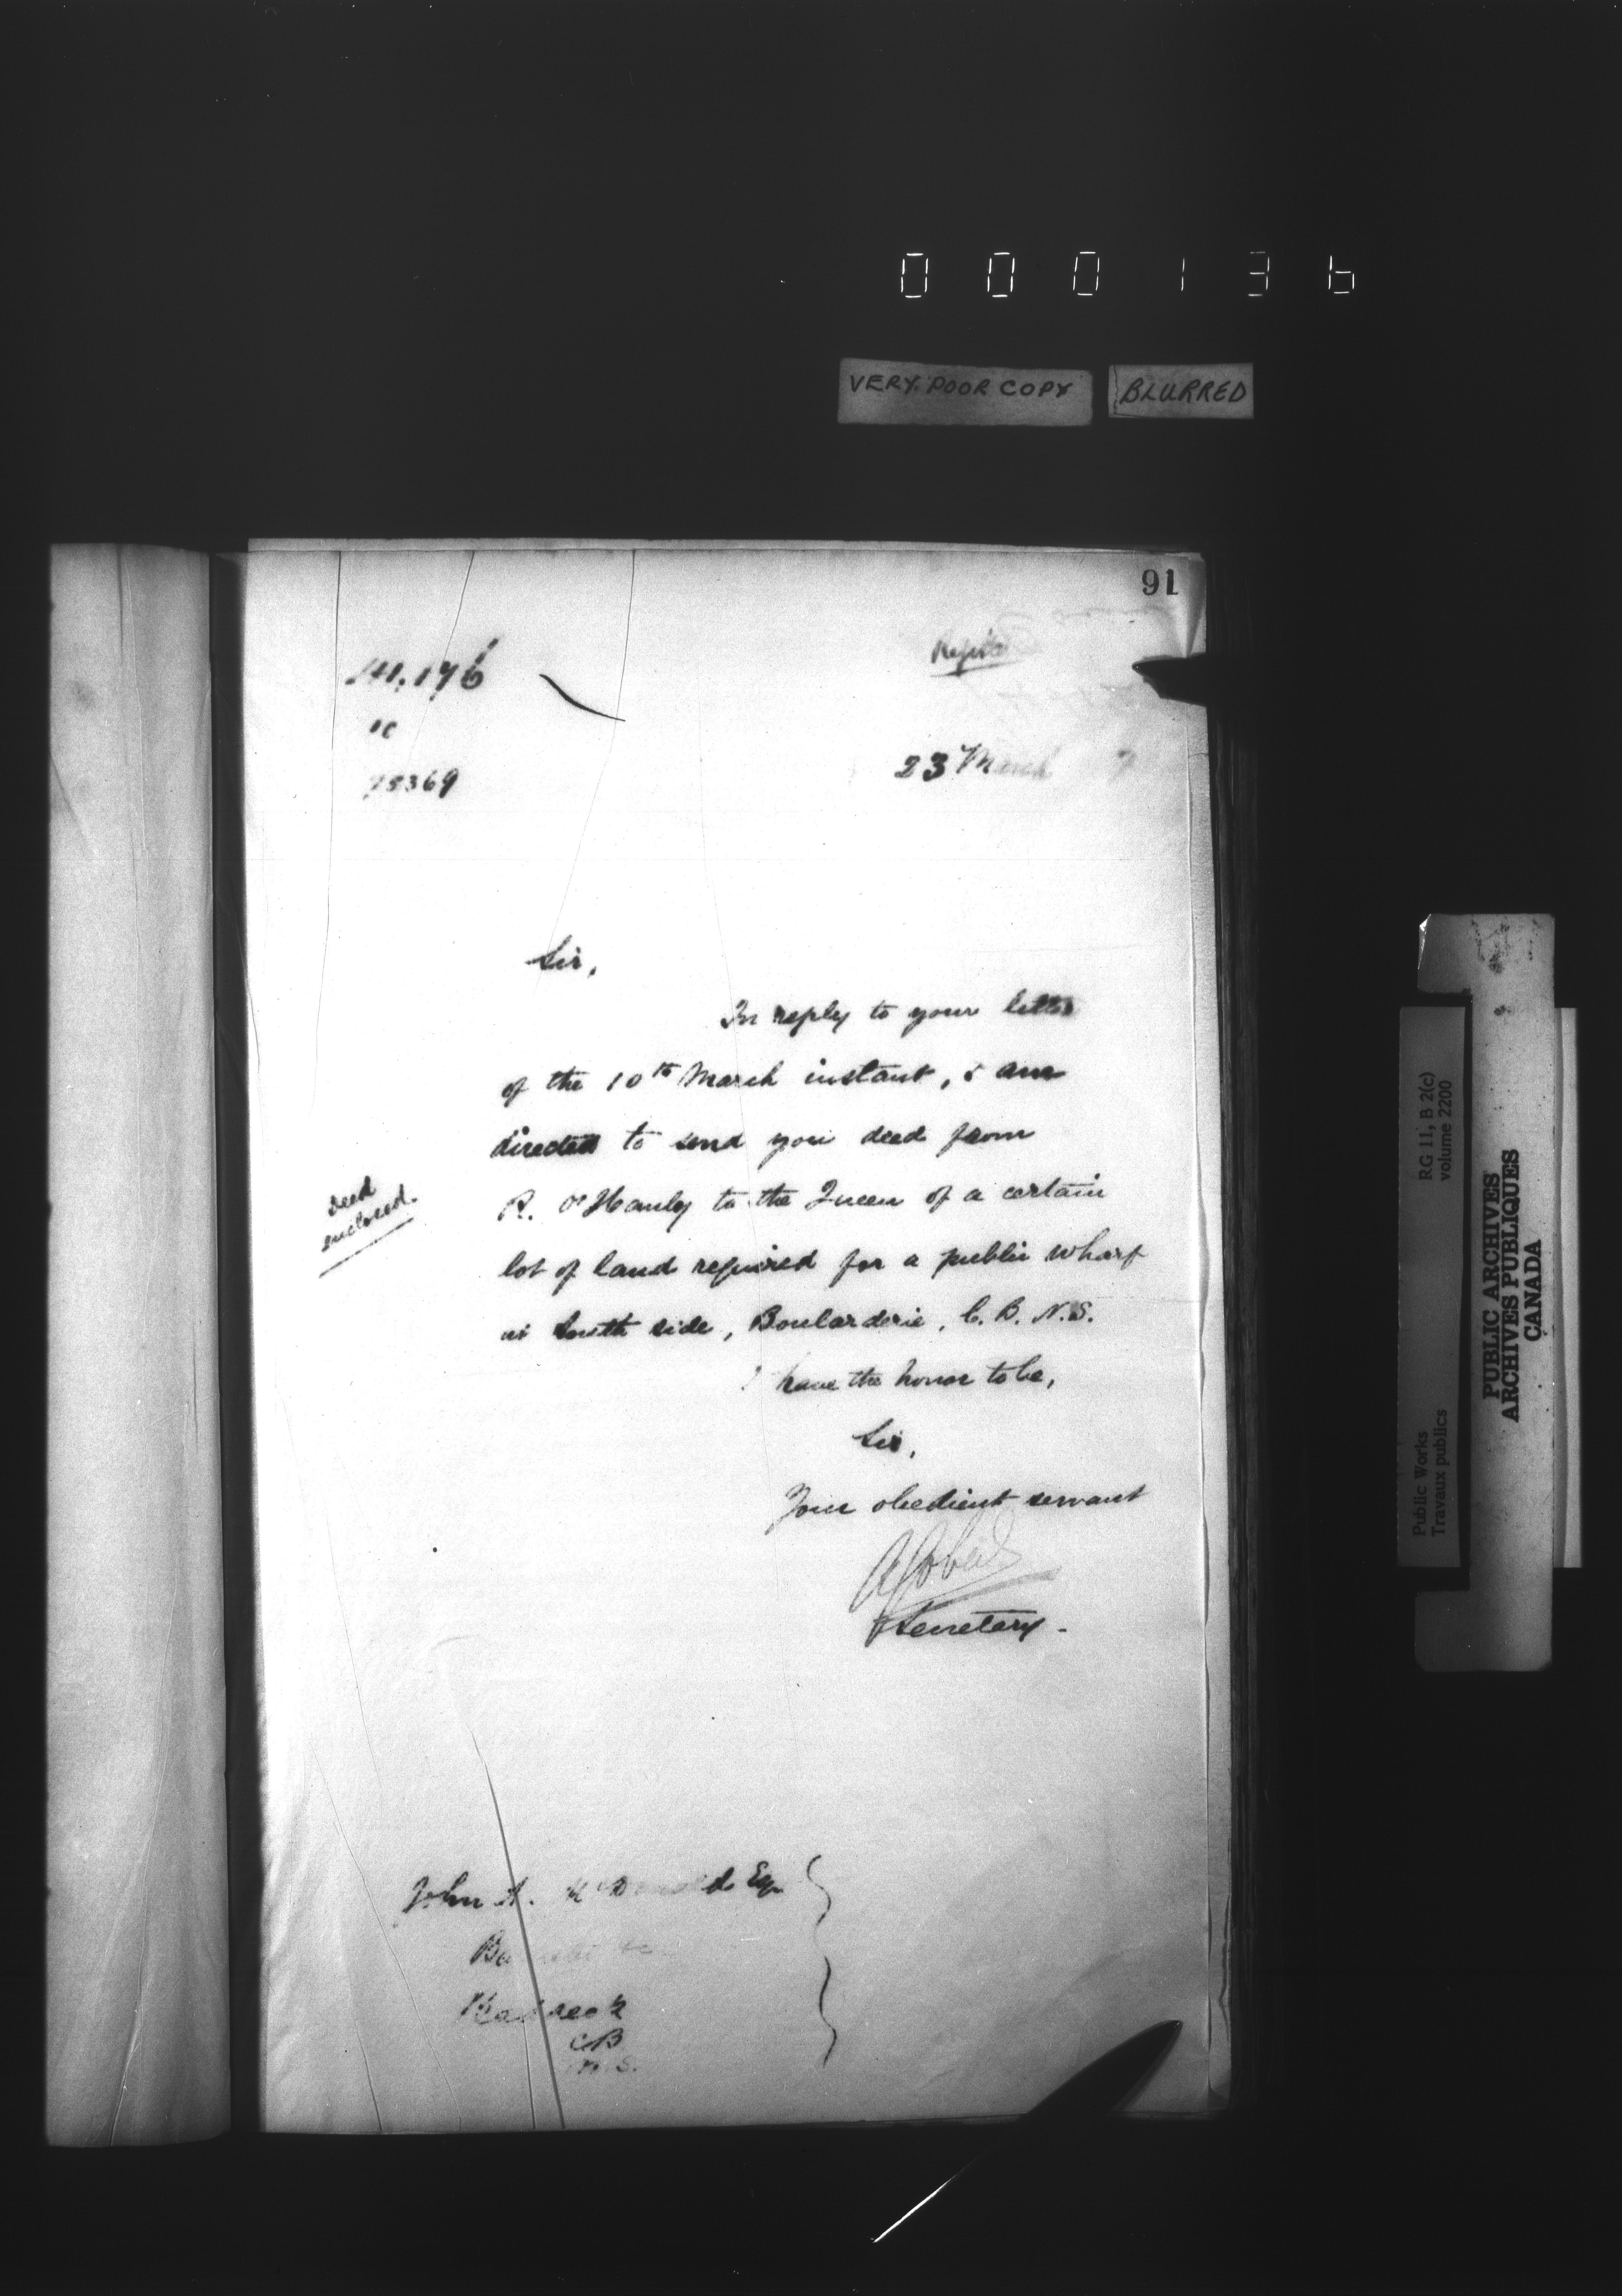 000136
VERY POOR COPY BLURRED
91
23 March 7
75369
Sir,
In reply to your letter
of the 10th March instant, I am
directed to send you deed from
R. O'Hanly to the Queen of a certain
lot of land required for a public wharf
at South side, Boularderie, C. B. N.S.
Deed
enclosed.
I have the honor to be,
Sir,
Your obedient servant
A Gobeil
Secretary.
John A. McDonald Esq
Baddeck
CB
N.S.
RG 11, B 2(c)
volume 2200
Public Works
Travaux publics
PUBLIC ARCHIVES
ARCHIVES PUBLIQUES
CANADA